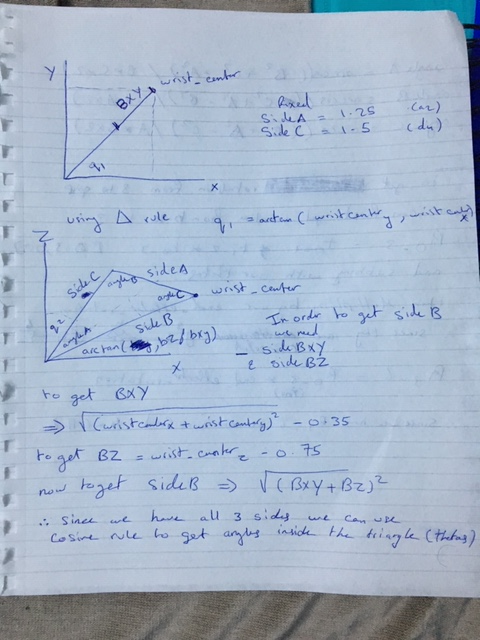 Y
wrist_center
BXY
q1
X
Fixed
Side A = 1.25 (a2)
Side C = 1.5 (d4)
using Δ rule q1 = arctan( wristcentery , wristcenterx)
Z
side C
angle B
side A
angle C
wrist_center
q2
angle A
side B
arctan( , bz/bxy)
X
In order to get side B
we need
- side BXY
& side BZ
to get BXY
⇒ √(wristcenterx + wristcentery)² - 0.35
to get BZ = wrist_centerz - 0.75
now to get side B ⇒ √(BXY+BZ)²
∴ Since we have all 3 sides we can use
Cosine rule to get angles inside the triangle (thetas)